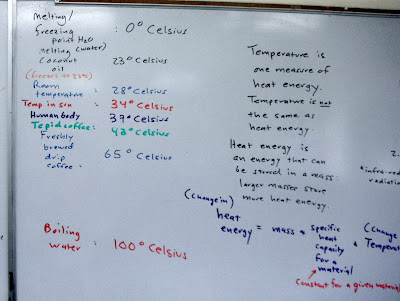 Melting/
freezing : 0° Celsius
point H2O
Melting (water)
Coconut 23° Celsius
oil
Room
temperature : 28° Celsius
Temp in sun : 34° Celsius
Human body : 37° Celsius
Tepid coffee : 43° Celsius
Freshly
brewed
drip 65° Celsius
coffee :
Boiling
water : 100° Celsius
Temperature is
one measure of
heat energy.
Temperature is not
the same as
heat energy.
Heat energy is
an energy that can
be stored in a mass:
larger masses store
more heat energy.
(Change in)
heat
energy = mass * specific
heat
capacity
for a
material
(Change
Temperat
Constant for a given material
2.
infra-red
radiation